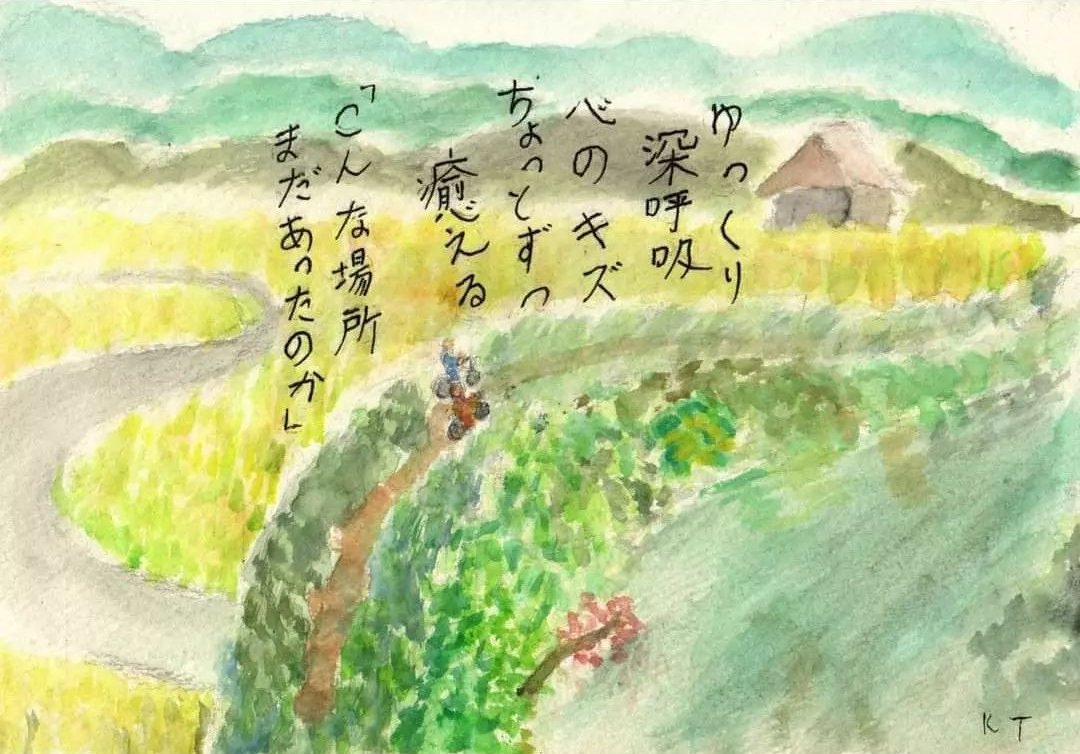 ゆっくり
深呼吸
心のキズ
ちょっとずつ
癒える
「こんな場所
まだあったのか」
K T